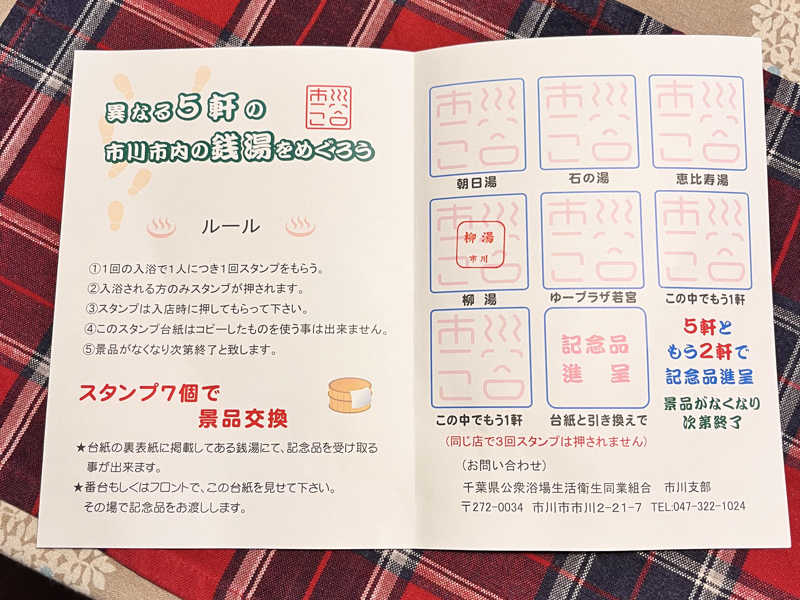 異なる5軒の
市川市内の銭湯をめぐろう
ルール
①1回の入浴で1人につき1回スタンプをもらう。
②入浴される方のみスタンプが押されます。
③スタンプは入店時に押してもらって下さい。
④このスタンプ台紙はコピーしたものを使う事は出来ません。
⑤景品がなくなり次第終了と致します。
スタンプ7個で
景品交換
★台紙の裏表紙に掲載してある銭湯にて、記念品を受け取る
事が出来ます。
★番台もしくはフロントで、この台紙を見せて下さい。
その場で記念品をお渡しします。
朝日湯
石の湯
恵比寿湯
柳湯
市川
柳湯
ゆープラザ若宮
この中でもう1軒
記念品
進呈
5軒と
もう2軒で
記念品進呈
景品がなくなり
次第終了
この中でもう1軒
台紙と引き換えで
(同じ店で3回スタンプは押されません)
(お問い合わせ)
千葉県公衆浴場生活衛生同業組合 市川支部
〒272-0034 市川市市川2-21-7 TEL:047-322-1024